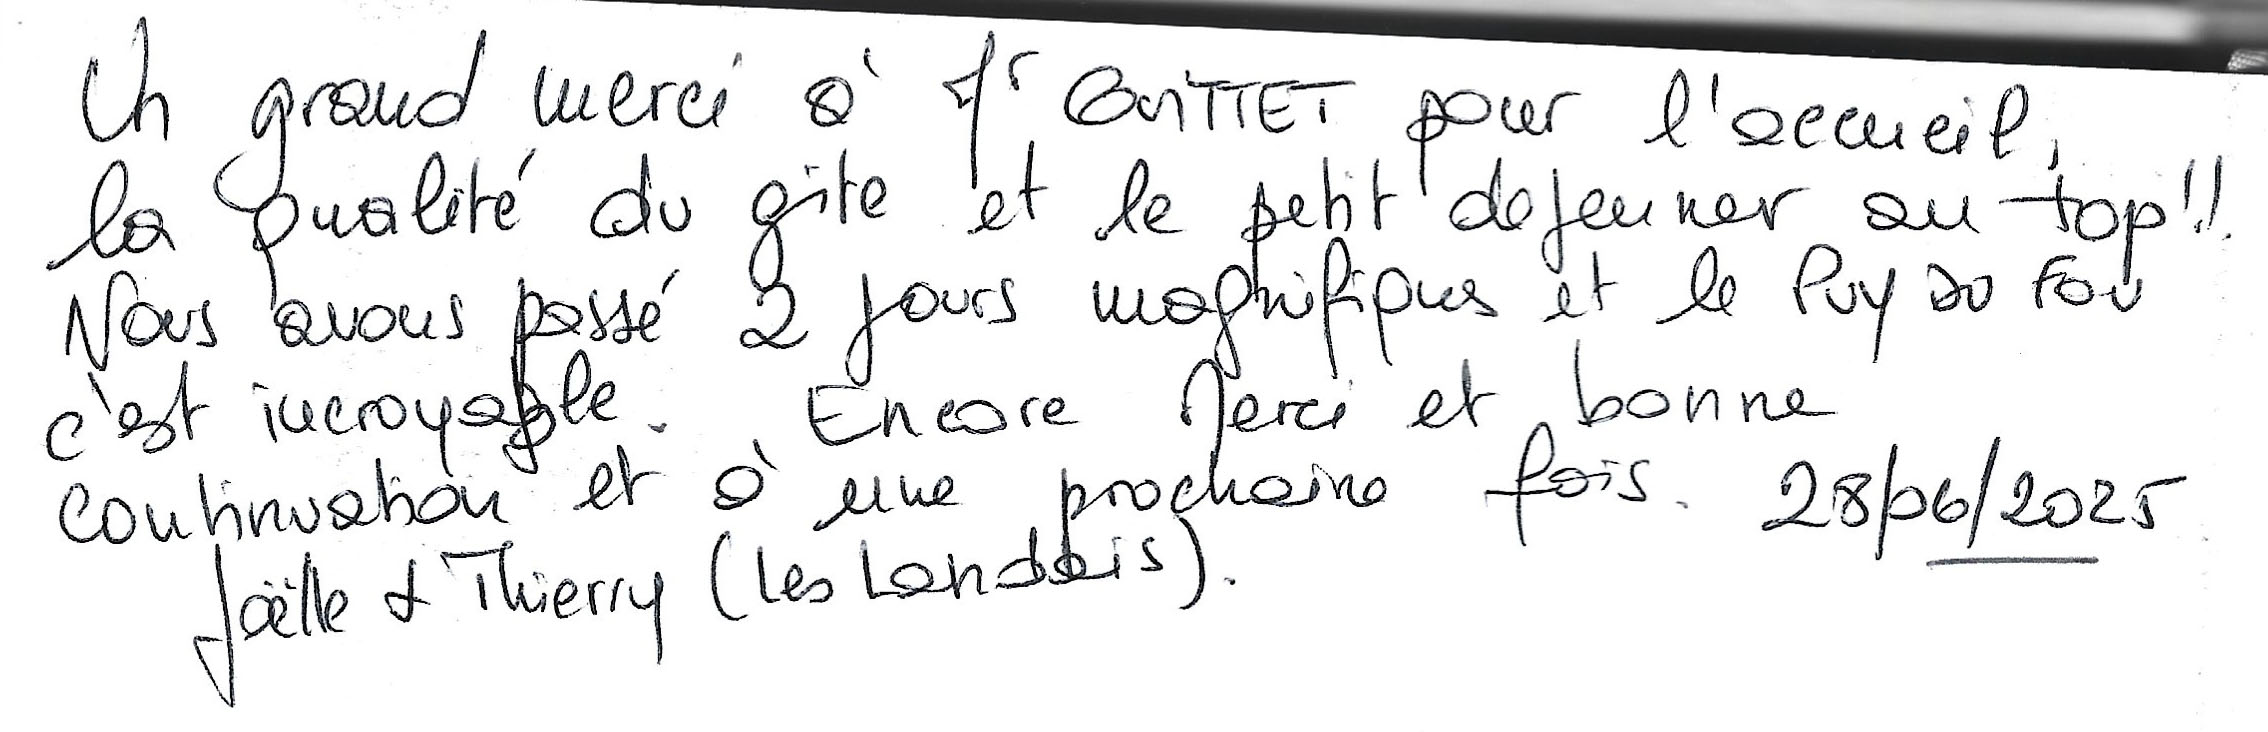 Un grand merci à Mr pour l'accueil,
la qualité du gite et le petit dejeuner au top!!
Nous avons passé 2 jours magnifiques et le Puy DU FOU
c'est incroyable. Encore Merci et bonne
continuation et à une prochaine fois. 28/06/2025
Joëlle & Thierry (les Landais).